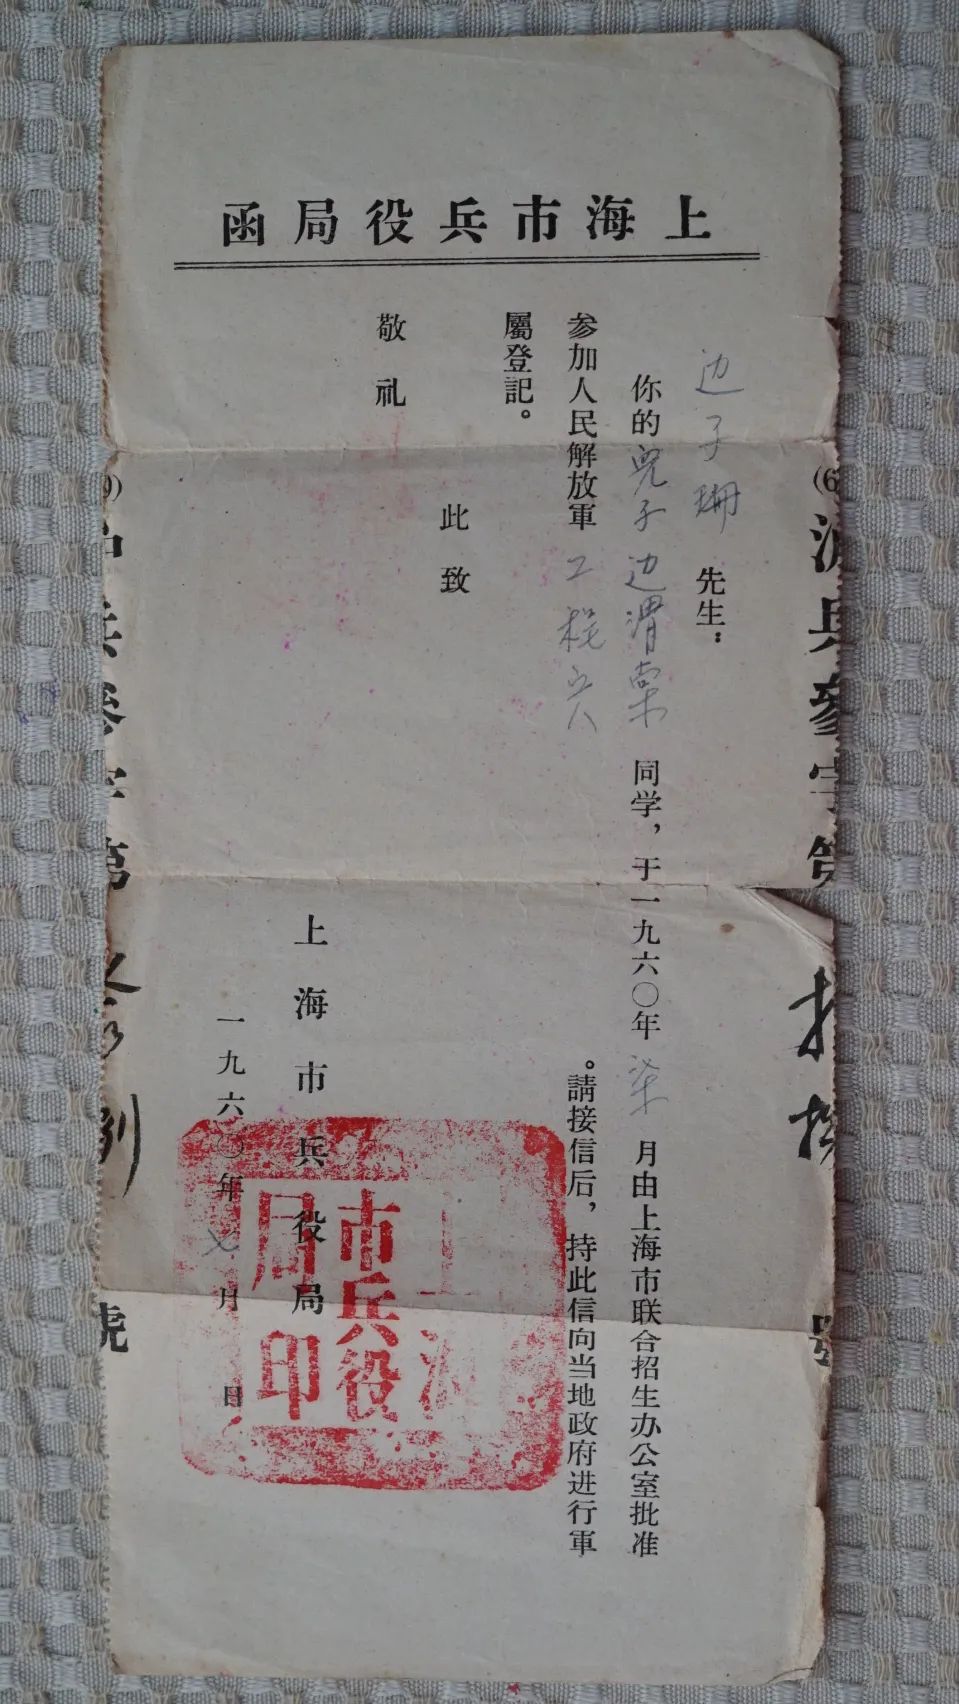 上海市兵役局函
边子珊先生：
你的兒子边渭棠同学，于一九六〇年柒月由上海市联合招生办公室批准
参加人民解放軍工程兵。請接信后，持此信向当地政府进行軍
屬登記。
此致
敬礼
上海市兵役局
一九六〇年七月 日
上海
市兵役
局印
號